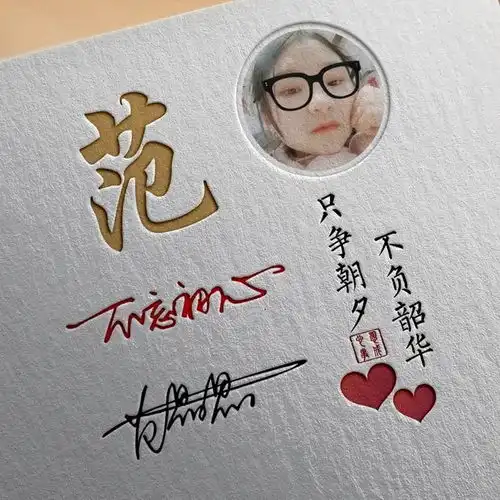 范
不忘初心
只争朝夕
不负韶华